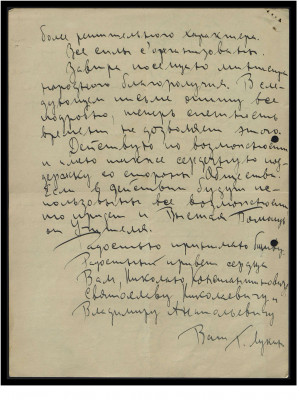 более решительного характера.
Все силы сорганизованы.
Завтра посещаю министра
народного благополучия. В сле-
дующем письме опишу все
подробно, теперь спешность
времени не дозволяет этого.
Действую по возможности
и имею также сердечную под-
держку со стороны Общества.
Если в действии будут ис-
пользованы все возможности
то придет и Высшая Помощь
от Учителя.
Радостно принимаю битву.
Радостный привет сердца
Вам, Николаю Константиновичу,
Святославу Николаевичу и
Владимиру Анатольевичу
Ваш Г. Лукин